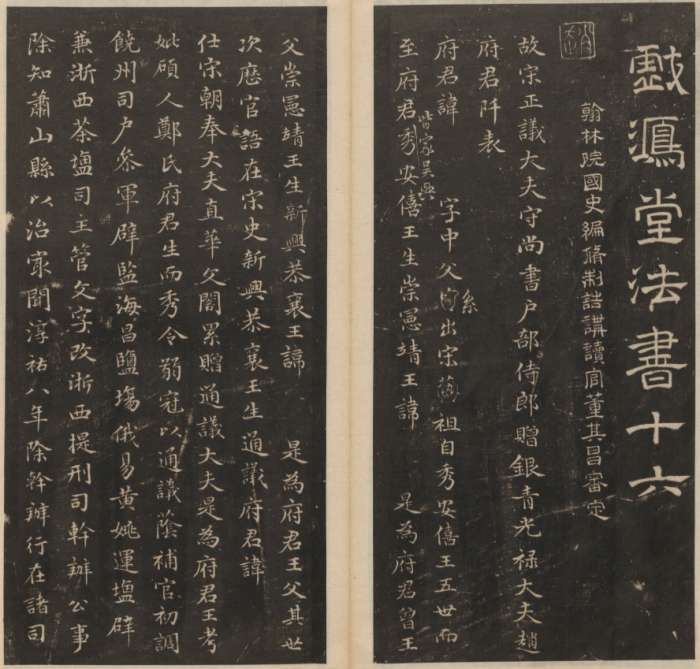 戲鴻堂法書十六
翰林院國史編脩制誥講讀官董其昌審定
故宋正議大夫守尚書户部侍郎贈銀青光禄大夫趙
府君阡表
府君諱 字中父系出宋蓺祖自秀安僖王五世而
家吴興
至府君秀安僖王生崇憲靖王諱 是為府君曾王
父崇憲靖王生新興恭襄王諱 是為府君王父其世
次歷官語在宋史新興恭襄王生通議府君諱
仕宋朝奉大夫直華文閣累贈通議大夫是為府君王考
妣碩人鄭氏府君生而秀令弱冠以通議蔭補官初調
饒州司户叅軍辟監海昌鹽塲俄易黄姚運鹽辟
兼浙西茶鹽司主管文字改浙西提刑司幹辦公事
除知蕭山縣以治冣聞淳祐八年除幹辦行在諸司